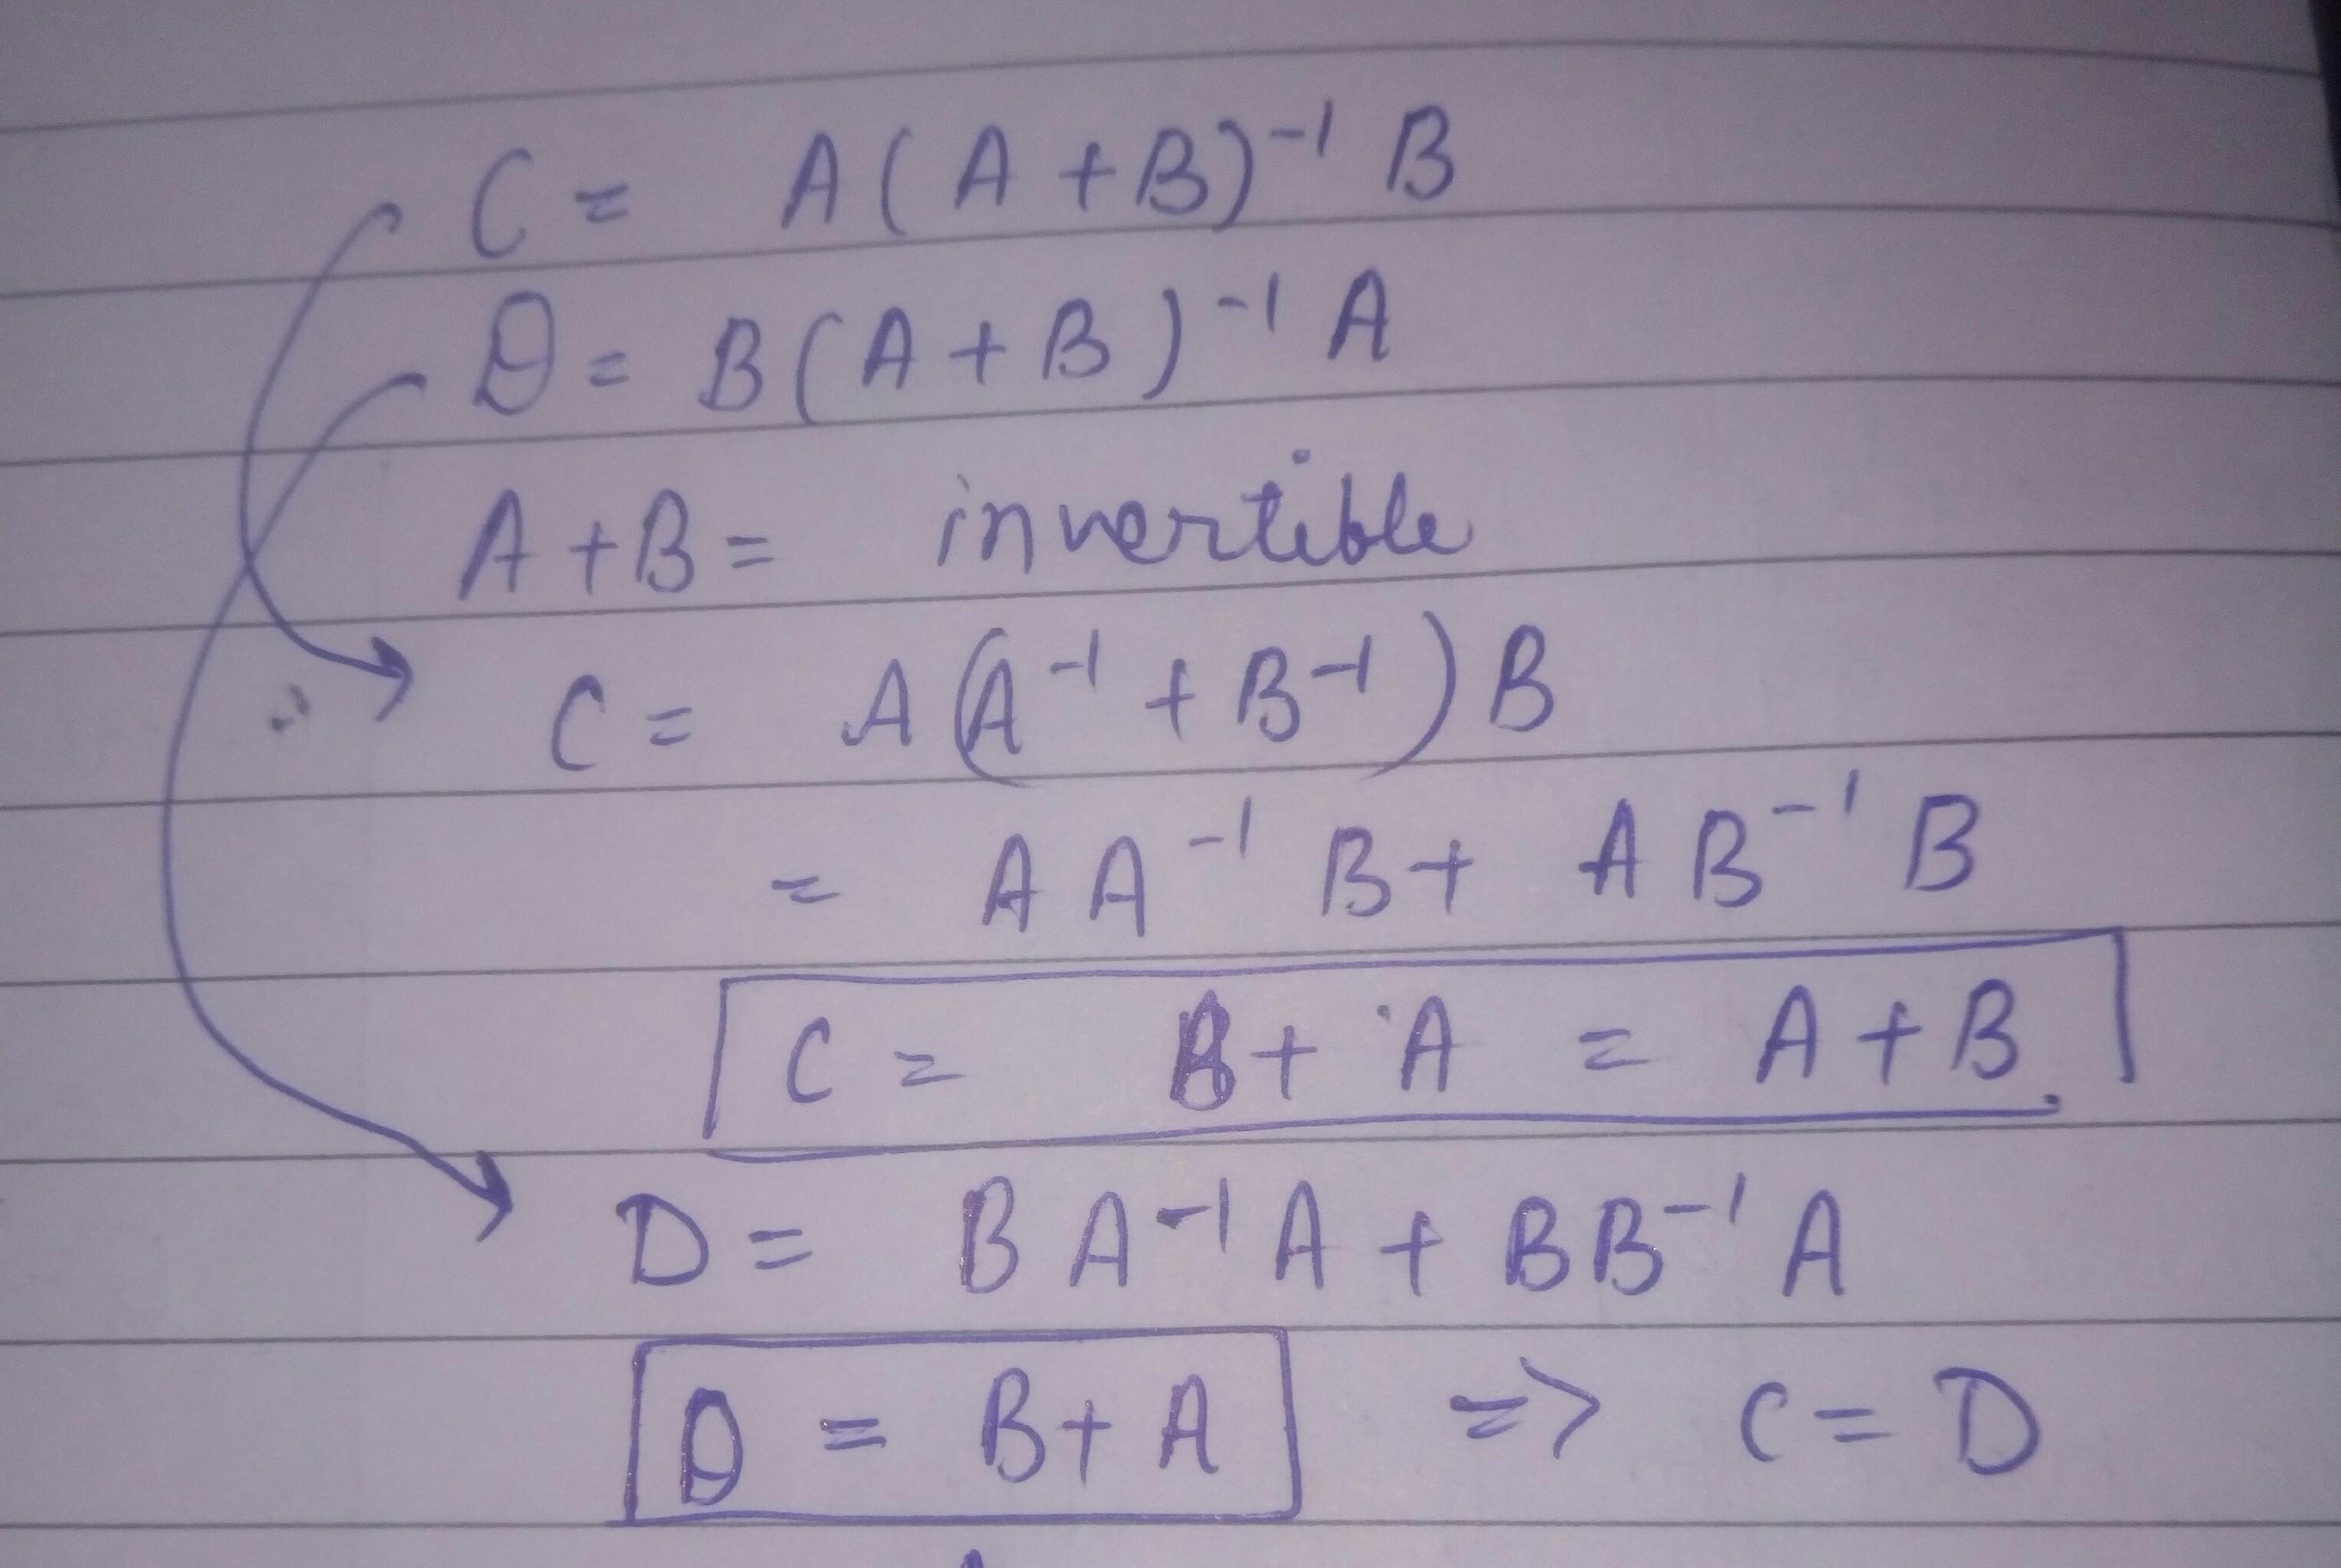 C = A(A+B)⁻¹ B
D = B(A+B)⁻¹ A
A+B = invertible
C = A(A⁻¹ + B⁻¹)B
= AA⁻¹B + AB⁻¹B
C = B+A = A+B.
D = BA⁻¹A + BB⁻¹A
D = B+A => C = D